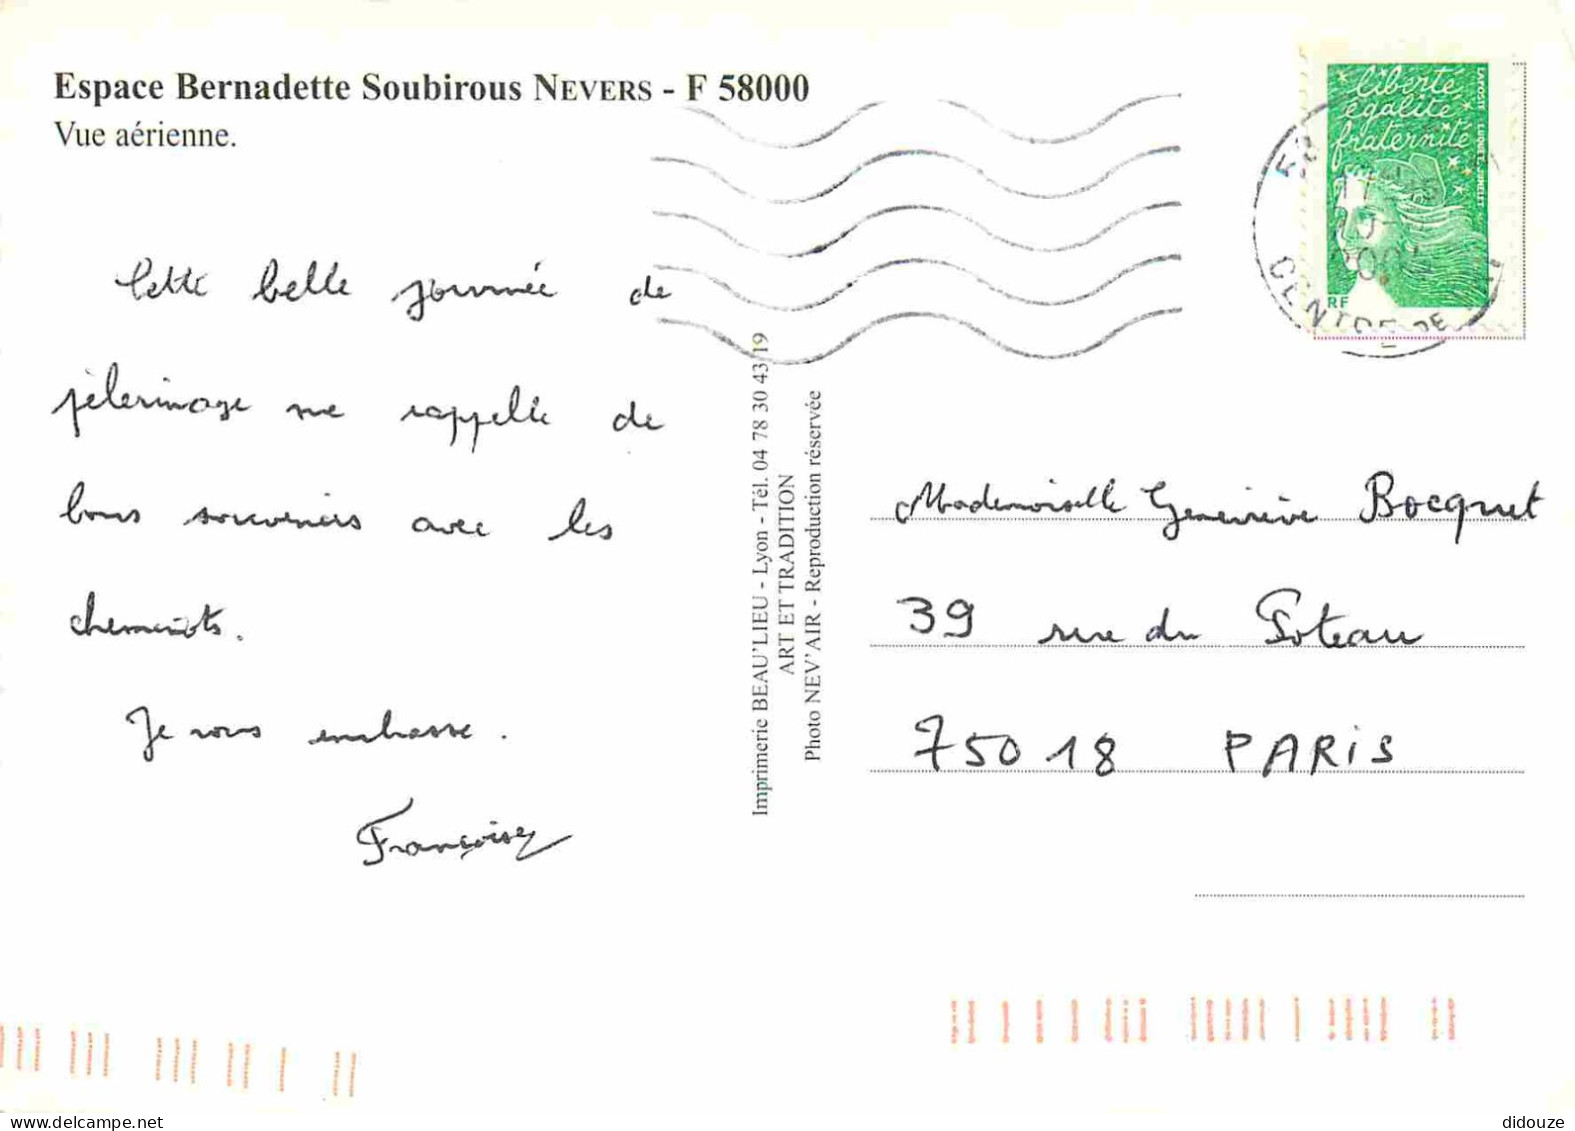 Espace Bernadette Soubirous NEVERS - F 58000
Vue aérienne.
Cette belle journée de
pèlerinage me rappelle de
bons souvenirs avec les
cheminots.
Je vous embrasse.
Françoise
Imprimerie BEAU'LIEU - Lyon - Tél. 04 78 30 43 19
ART ET TRADITION
Photo NEV'AIR - Reproduction réservée
liberté
égalité
fraternité
LA POSTE
RF
58
17
CENTRE DE
Mademoiselle Geneviève Bocquet
39 rue du Poteau
75018 PARIS
Delcampe.net
didouze